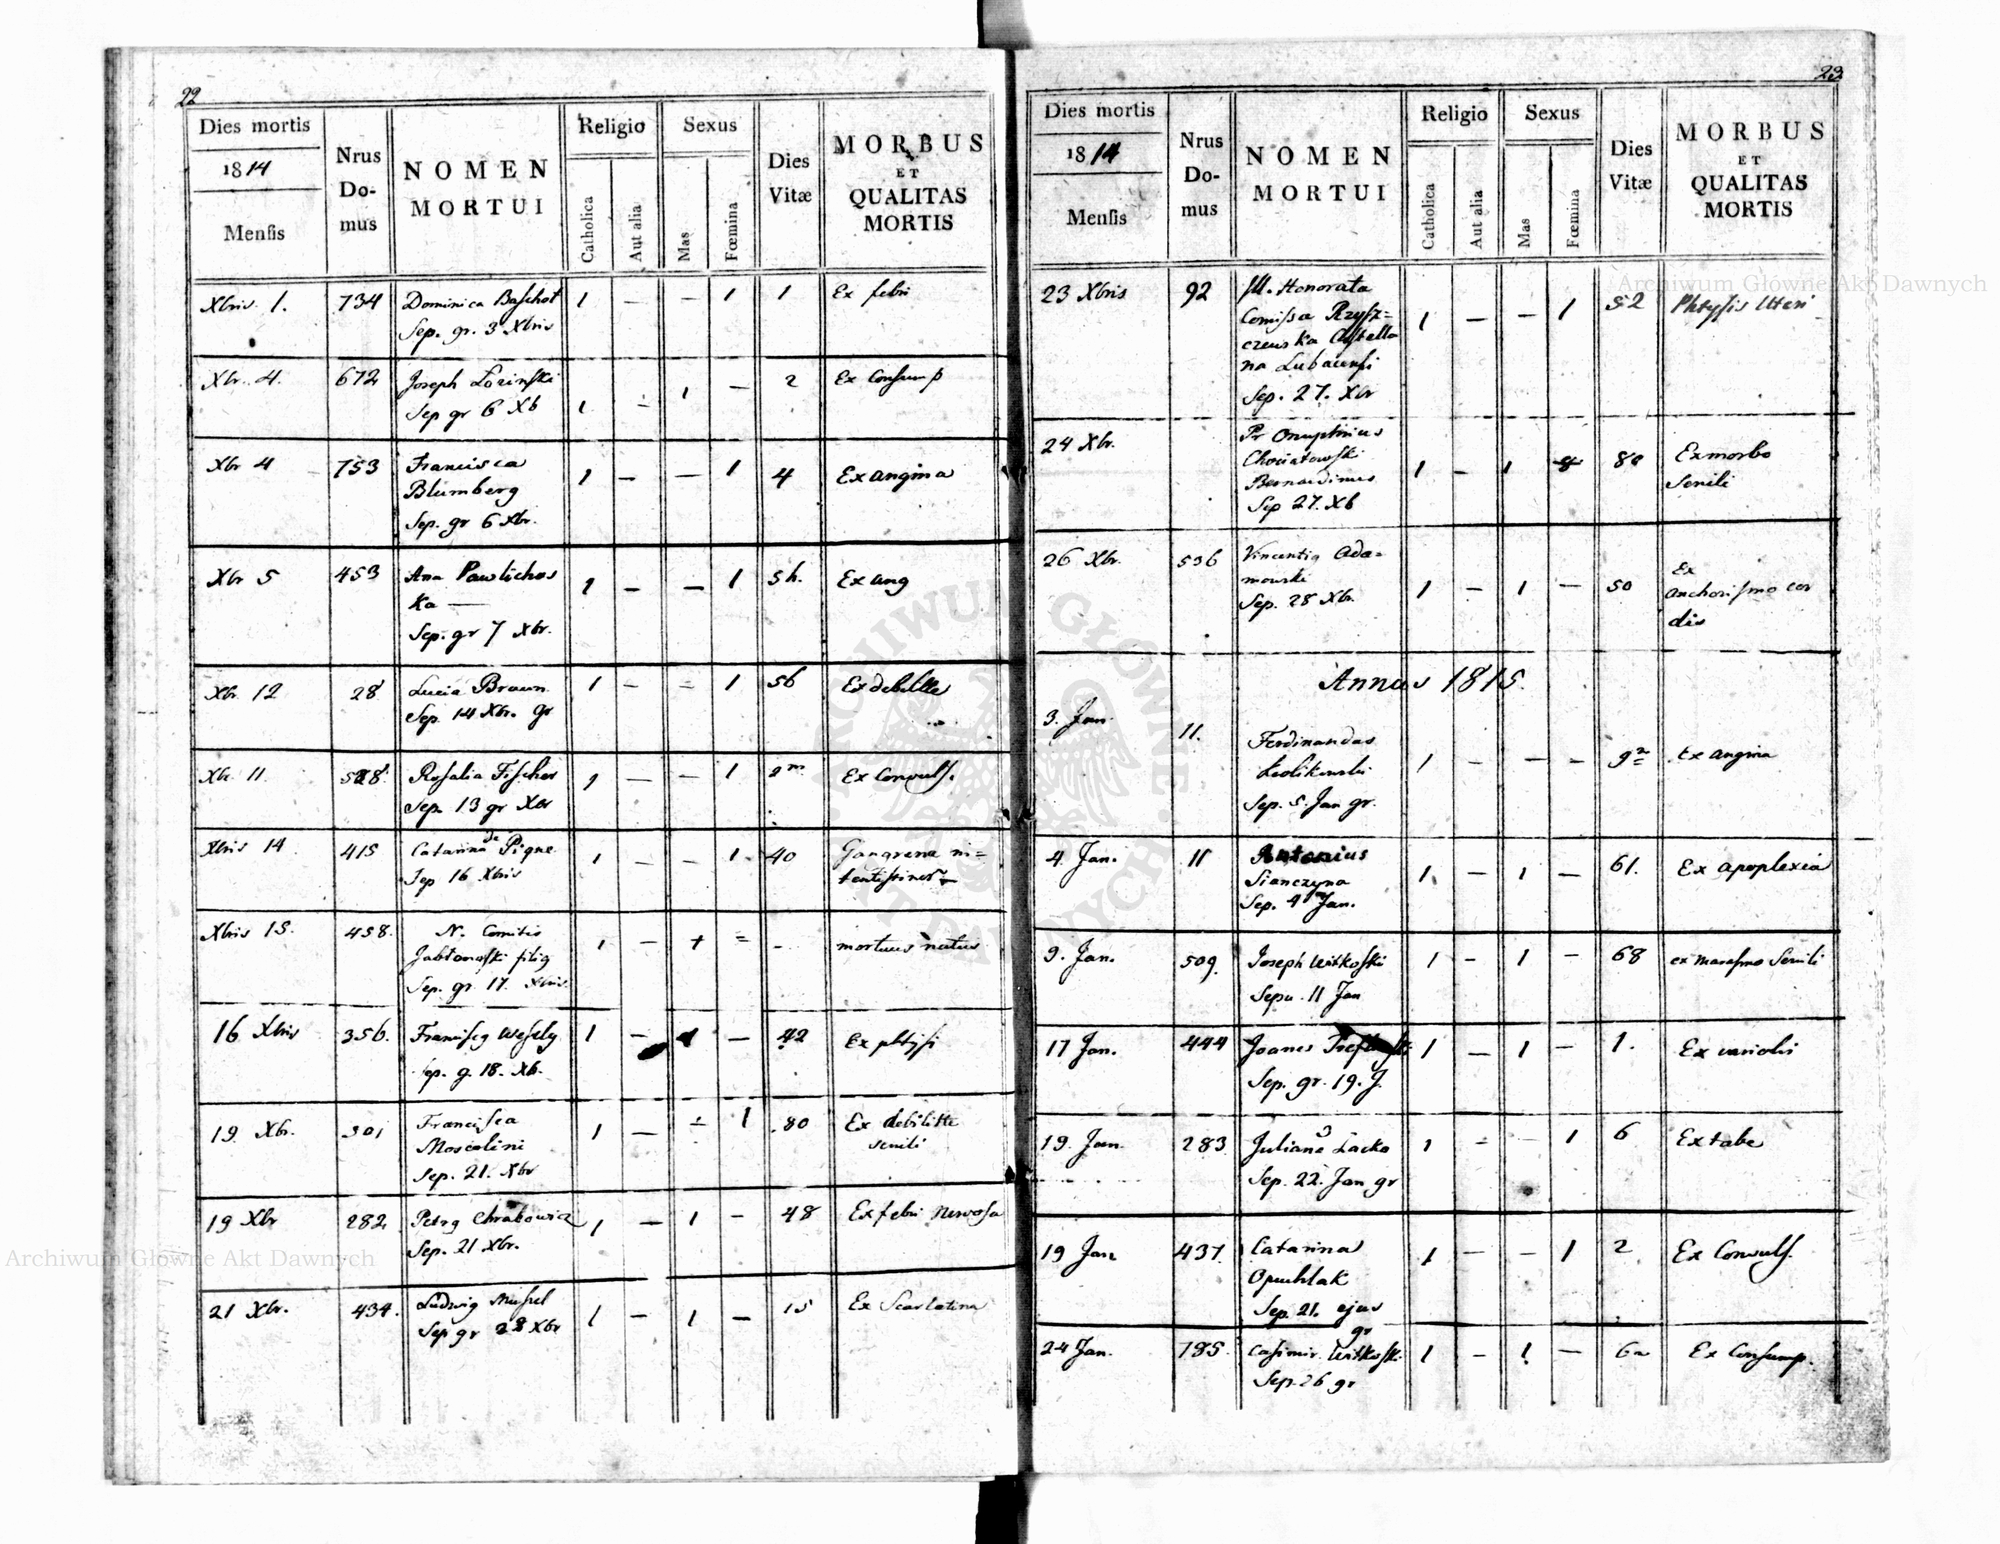 22
Dies mortis
1814
Mensis
Nrus Do-mus
NOMEN MORTUI
Religio
Catholica
Aut alia
Sexus
Mas
Fœmina
Dies Vitæ
MORBUS
ET
QUALITAS
MORTIS
Xbris 1. 734 Dominica 1 — — 1 1 Ex febri
Sep. gr. 3 Xbris
Xbr. 4. 672 Joseph Lozinski 1 — 1 — 2 Ex Consump
Sep gr 6 Xb
Xbr 4 753 Francisca 1 — — 1 4 Ex angina
Blumberg
Sep. gr 6 Xbr.
Xbr 5 453 Ana Pawlichos 1 — — 1 5h. Ex ang
ka —
Sep. gr 7 Xbr.
Xbr 12 28 Lucia Braun 1 — — 1 56
Sep. 14 Xbr. gr
Xbr 11 Rosalia Fischer 1 — — 1 2m Ex Convuls.
Sep. 13 gr Xbr
Xbris 14 415 Catarina de Pique 1 — — 1 40 Gangrena in=
Sep 16 Xbris
Xbris 15. 458. N. Comitis 1 — + = - mortuus natus
Jabłonoski filią
Sep. gr. 17. Xbris
16 Xbris 356. Francisg Wesely 1 — 1 — 42 Ex phtysi
Sep. g. 18. Xb.
19 Xbr. 301 Francisca 1 — ÷ 1 80 Ex debilitte
Moscolini senili
Sep. 21. Xbr
19 Xbr 282 Petrg Chrakowicz 1 — 1 — 48 Ex febri Nervosa
Sep. 21 Xbr.
21 Xbr. 434. Ludwig 1 — 1 — 15 Ex Scarlatina
Sep gr 23 Xbr
23
Dies mortis
1814
Mensis
Nrus Do-mus
NOMEN MORTUI
Religio
Catholica
Aut alia
Sexus
Mas
Fœmina
Dies Vitæ
MORBUS
ET
QUALITAS
MORTIS
23 Xbris 92 M. Honorata 1 — — 1 52 Phtysis Uteri
Comissa Rzysz=
czeuska Castella
na Lubacensi
Sep. 27. Xbr
24 Xbr. Pr Onuphrius 1 — 1 80 Ex morbo
Senili
Bernardinus
Sep 27. Xb
26 Xbr. 536 Vincentig Ada= 1 — 1 — 50 Ex
mouski cor
Sep. 28 Xbr. dis
Annus 1815.
3. Jan. 11. Ferdinandus 1 — — — Ex angina
Sep. 5. Jan gr.
4 Jan. 11 Antonius 1 — 1 — 61. Ex apoplexia
Sianczyna
Sep. 4 Jan.
9. Jan. 509. Joseph Witkoski 1 — 1 — 68 ex marasmo Senili
Sepu. 11 Jan
17 Jan. 444 Joanes 1 — 1 — 1. Ex variolis
Sep. gr. 19. J.
19. Jan. 283 Juliana Lacka 1 - — 1 6 Ex tabe
Sep. 22. Jan gr
19 Jan 437. Catarina 1 — — 1 2 Ex Convuls.
Opuchlak
Sep. 21. ejus
gr
24 Jan. 785. Casimir. Witkoski 1 — 1 — 6a Ex Consump.
Sep. 26 gr
Archiwum Główne Akt Dawnych
Archiwum Główne Akt Dawnych
ARCHIWUM GŁÓWNE AKT DAWNYCH